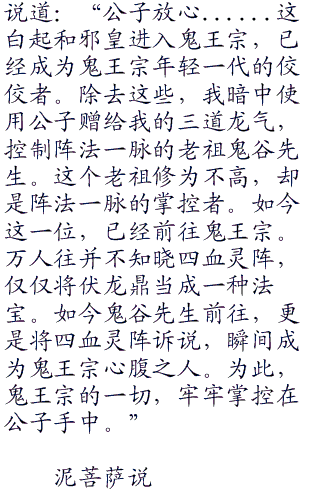 说道：“公子放心......这
白起和邪皇进入鬼王宗，已
经成为鬼王宗年轻一代的佼
佼者。除去这些，我暗中使
用公子赠给我的三道龙气，
控制阵法一脉的老祖鬼谷先
生。这个老祖修为不高，却
是阵法一脉的掌控者。如今
这一位，已经前往鬼王宗。
万人往并不知晓四血灵阵，
仅仅将伏龙鼎当成一种法
宝。如今鬼谷先生前往，更
是将四血灵阵诉说，瞬间成
为鬼王宗心腹之人。为此，
鬼王宗的一切，牢牢掌控在
公子手中。”
泥菩萨说